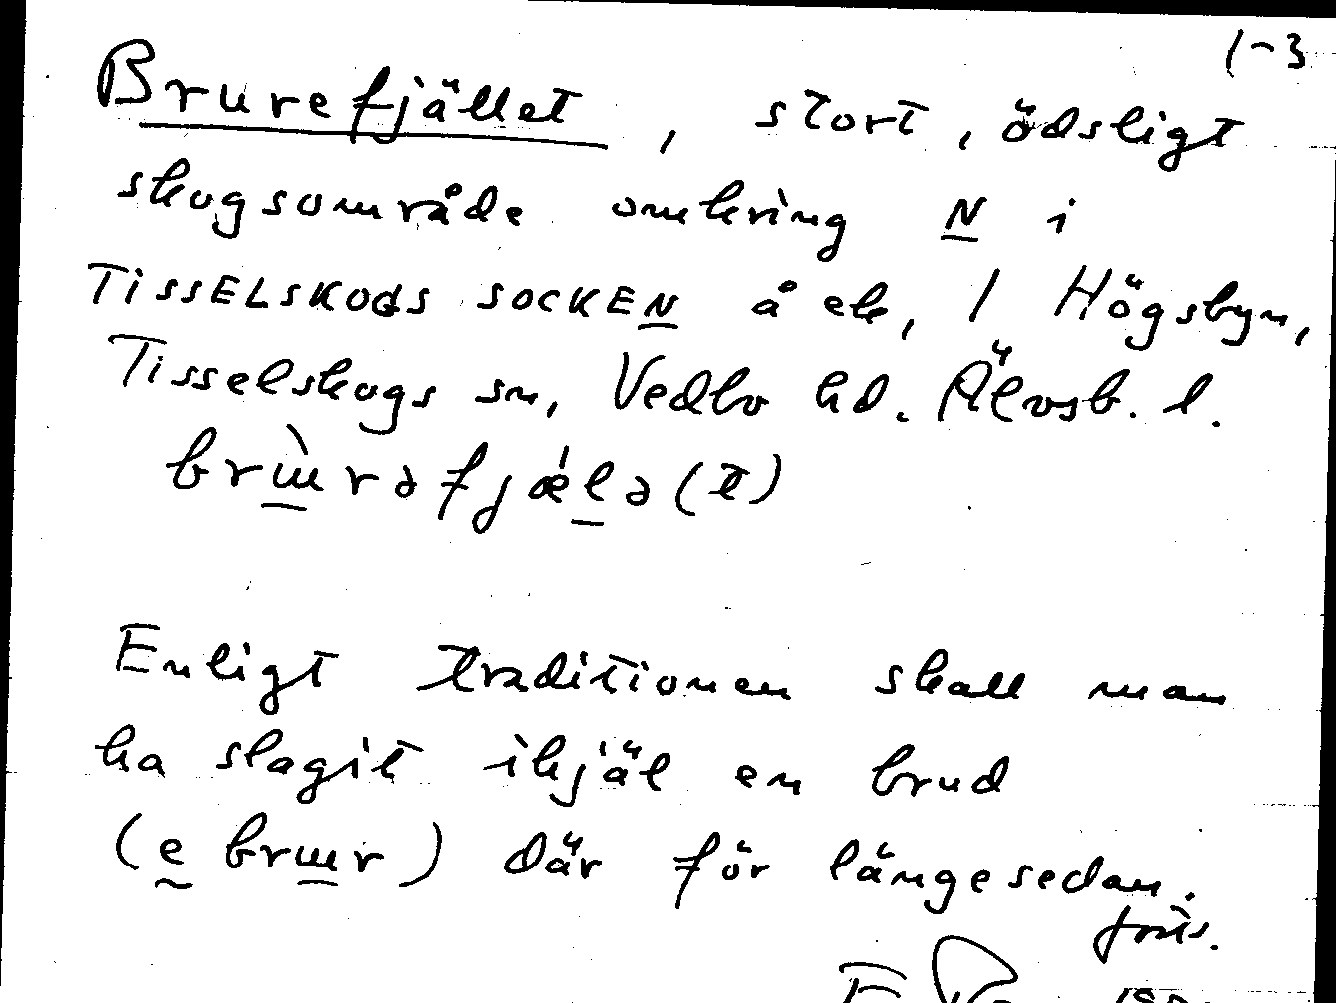 1-3
Brurefjället, stort, ödsligt
skogsområde omkring N i
TISSELSKOGS SOCKEN å ek, / Högsbyn,
Tisselskogs sn, Vedbo hd. Älvsb. l.
brɯ̀rəfjǽlə(t)
Enligt traditionen skall man
ha slagit ihjäl en brud
(e brɯr) där för länge sedan.
forts.